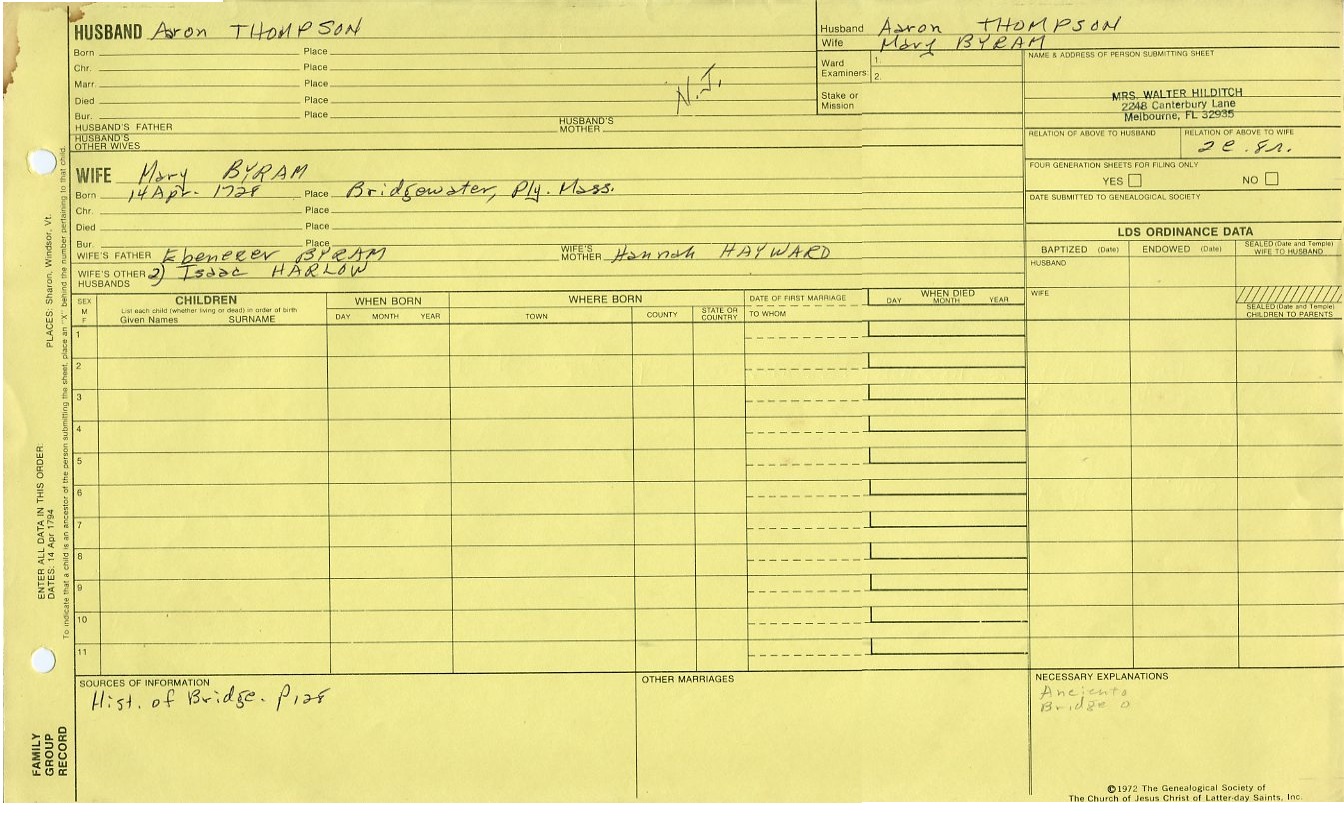 HUSBAND Aaron THOMPSON
Born Place
Chr. Place
Marr. Place
Died Place
Bur. Place
N.J.
HUSBAND'S FATHER HUSBAND'S MOTHER
HUSBAND'S OTHER WIVES
Husband Aaron THOMPSON
Wife Mary BYRAM
Ward Examiners: 1.
2.
Stake or Mission
NAME & ADDRESS OF PERSON SUBMITTING SHEET
MRS. WALTER HILDITCH
2248 Canterbury Lane
Melbourne, FL 32935
RELATION OF ABOVE TO HUSBAND RELATION OF ABOVE TO WIFE
FOUR GENERATION SHEETS FOR FILING ONLY
YES NO
DATE SUBMITTED TO GENEALOGICAL SOCIETY
WIFE Mary BYRAM
Born 14 Apr. 1728 Place Bridgewater, Ply. Mass.
Chr. Place
Died Place
Bur. Place
WIFE'S FATHER Ebenezer BYRAM WIFE'S MOTHER Hannah HAYWARD
WIFE'S OTHER HUSBANDS 2) Isaac HARLOW
LDS ORDINANCE DATA
BAPTIZED (Date) ENDOWED (Date) SEALED (Date and Temple) WIFE TO HUSBAND
HUSBAND
WIFE
SEALED (Date and Temple) CHILDREN TO PARENTS
SEX M F
CHILDREN
List each child (whether living or dead) in order of birth
Given Names SURNAME
WHEN BORN
DAY MONTH YEAR
WHERE BORN
TOWN COUNTY STATE OR COUNTRY
DATE OF FIRST MARRIAGE
TO WHOM
WHEN DIED
DAY MONTH YEAR
1
2
3
4
5
6
7
8
9
10
11
SOURCES OF INFORMATION
Hist. of Bridge. P128
OTHER MARRIAGES
NECESSARY EXPLANATIONS
Bridge
©1972 The Genealogical Society of
The Church of Jesus Christ of Latter-day Saints, Inc.
FAMILY GROUP RECORD
ENTER ALL DATA IN THIS ORDER:
DATES: 14 Apr 1794 PLACES: Sharon, Windsor, Vt.
To indicate that a child is an ancestor of the person submitting the sheet, place an "X" behind the number pertaining to that child.